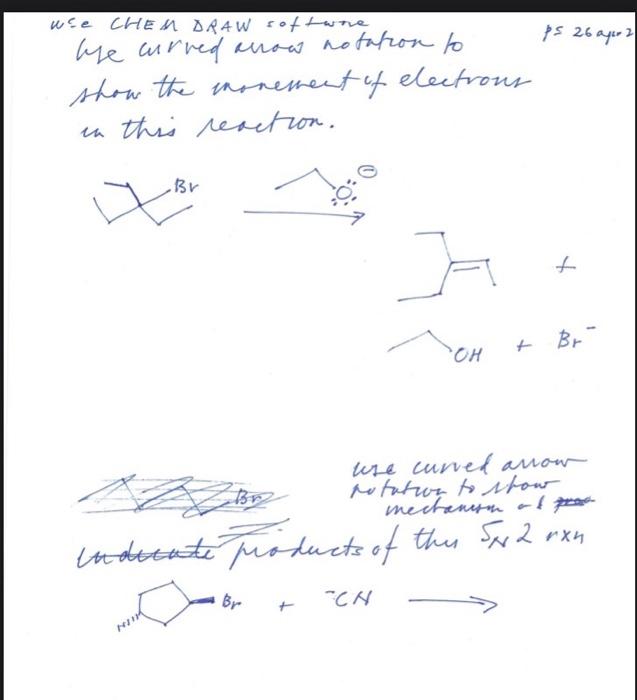 use CHEM DRAW software
Use curved arrow notation to
ps 26 apr 2
show the movement of electrons
in this reaction.
Br
:O: ⊖
+
OH + Br⁻
use curved arrow
notation to show
mechanism and
Br
indicate products of this SN2 rxn
Br + ⁻CN